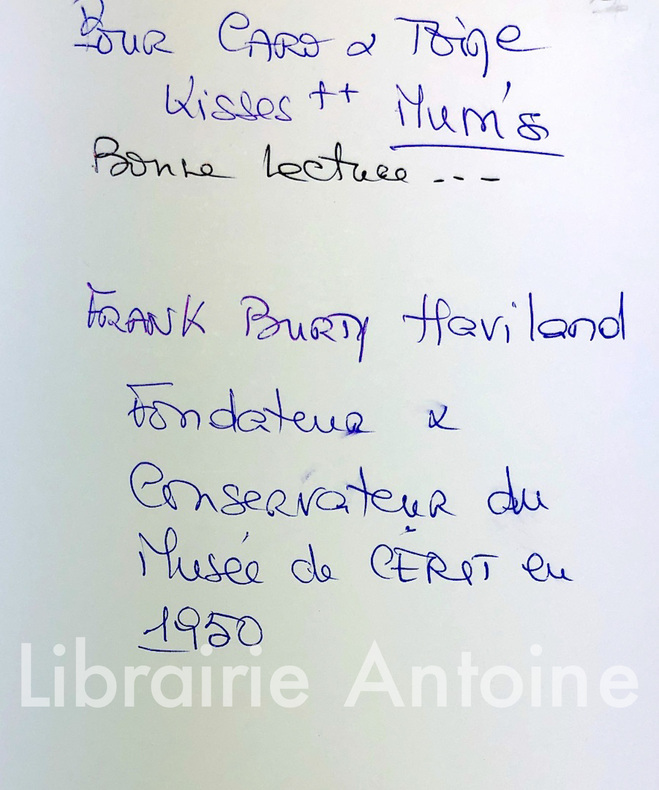 Pour CARO & Toine
Kisses ++ Mum's
Bonne lecture ---
FRANK BURTY Haviland
Fondateur &
Conservateur du
Musée de CÉRET en
1950
Librairie Antoine